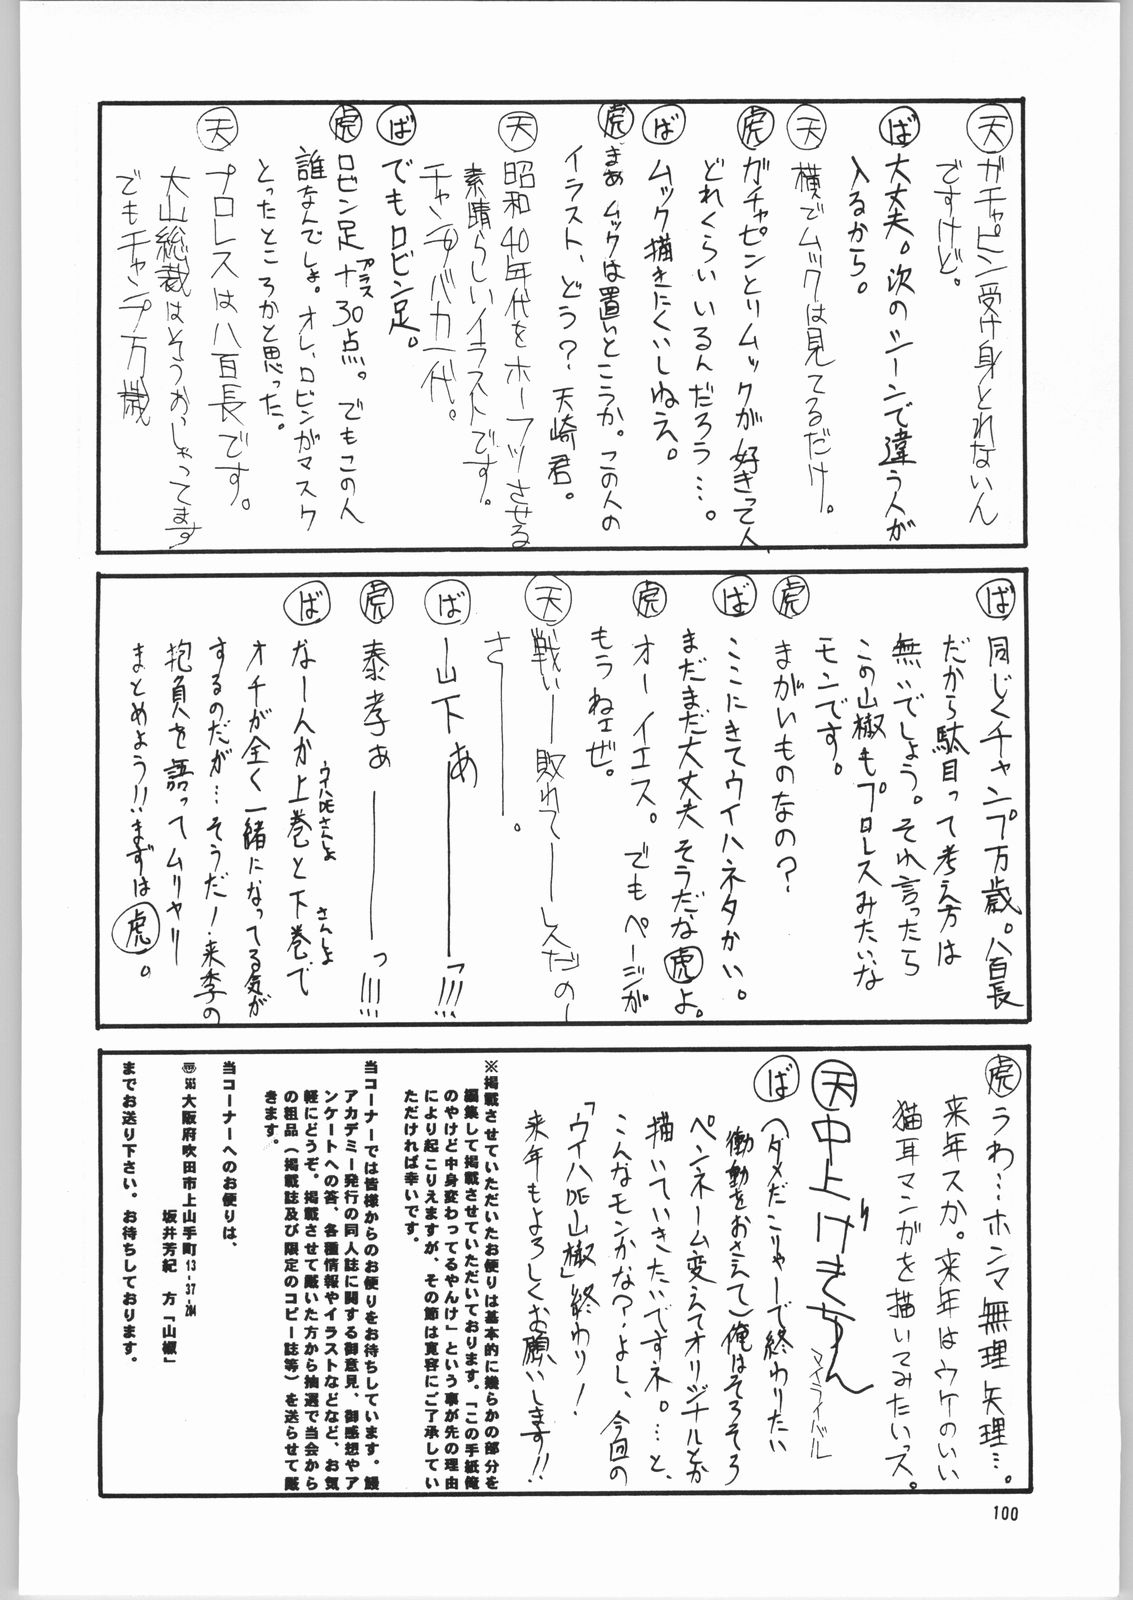 天 ガチャピン受け身とれないん
ですけど。
ば 大丈夫。次のシーンで違う人が
入るから。
天 横でムックは見てるだけ。
虎 ガチャピンとりムックが好きって人、
どれくらいいるんだろう…。
ば ムック描きにくいしねえ。
虎 まぁムックは置いとこうか。この人の
イラスト、どう?天崎君。
天 昭和40年代をホーフツさせる
素晴らしいイラストです。
チャンプバカ一代。
ば でもロビン足。
虎 ロビン足+プラス30点。でもこの人
誰なんでしょ。オレ、ロビンがマスク
とったところかと思った。
天 プロレスは八百長です。
大山総裁はそうおっしゃってます
でもチャンプ万歳
ば 同じくチャンプ万歳。八百長
だから駄目って考え方は
無いでしょう。それ言ったら
この山椒もプロレスみたいな
モンです。
虎 まがいものなの?
ば ここにきてウイハネタかい。
まだまだ大丈夫そうだな虎よ。
虎 オーイエス。でもページが
もうねェぜ。
天 戦いー敗れてーーレスだのー
さーーー。
ば ー山下あーーーっ!!!
虎 泰孝ぁーーーっ!!!
ば なーんか上巻と下巻で
ウイハDEさんしょ さんしょ
オチが全く一緒になってる気が
するのだが…そうだ!来季の
抱負を語ってムリヤリ
まとめよう!!まずは虎。
虎 うわ…ホンマ無理矢理…。
来年スか。来年はウケのいい
猫耳マンガを描いてみたいっス。
天 中上げきちん
マイライバル
ば (ダメだこりゃーで終わりたい
衝動をおさえて)俺はそろそろ
ペンネーム変えてオリジナルとか
描いていきたいですネ。…と、
こんなモンかな?よし、今回の
「ウイハDE山椒」終わり!
来年もよろしくお願いします!!
※掲載させていただいたお便りは基本的に幾らかの部分を
編集して掲載させていただいております。「この手紙俺
のやけど中身変わってるやんけ」という事が先の理由
により起こりえますが、その節は寛容にご了承してい
ただければ幸いです。
当コーナーでは皆様からのお便りをお待ちしています。鰻
アカデミー発行の同人誌に関する御意見、御感想やア
ンケートへの答、各種情報やイラストなどなど、お気
軽にどうぞ。掲載させて戴いた方から抽選で当会から
の粗品(掲載誌及び限定のコピー誌等)を送らせて戴
きます。
当コーナーへのお便りは、
〒565大阪府吹田市上山手町13-37-204
坂井芳紀 方「山椒」
までお送り下さい。お待ちしております。
100